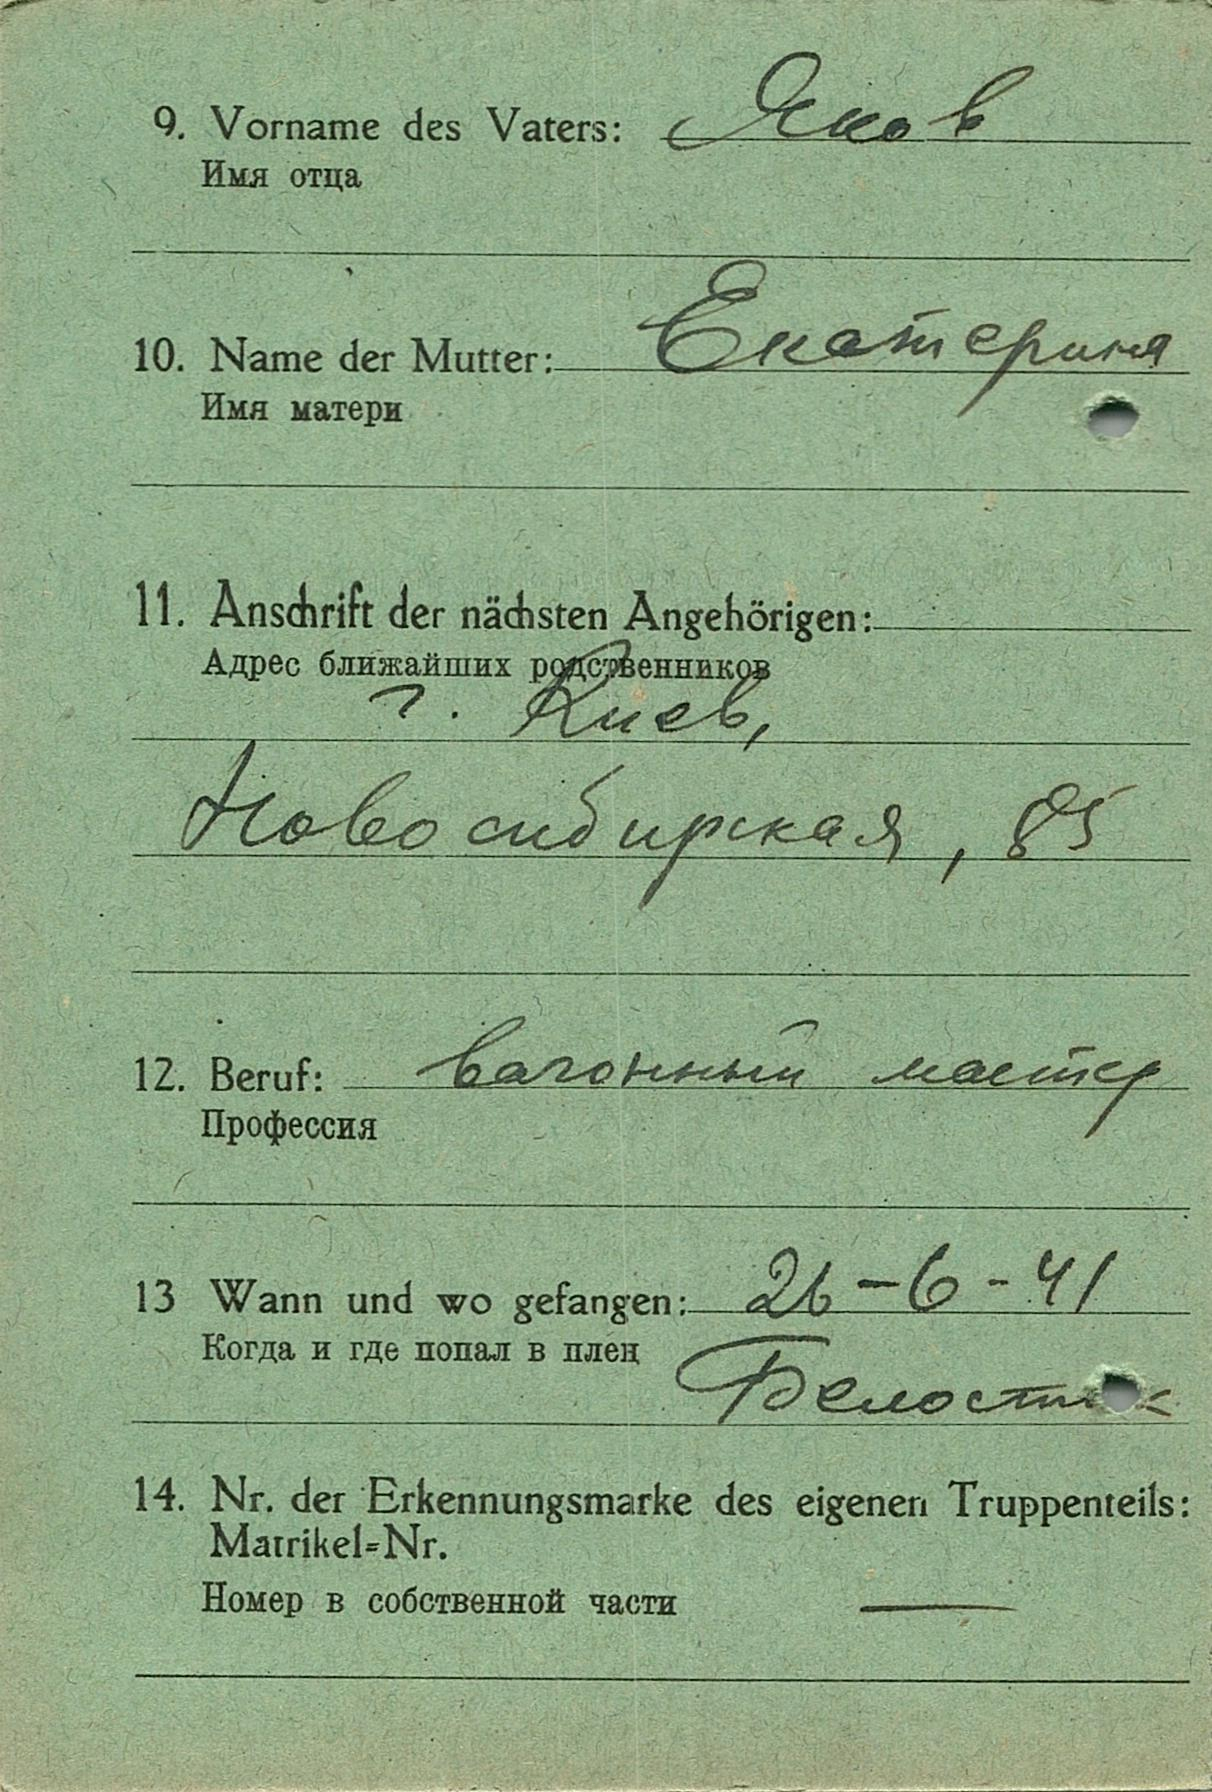 9. Vorname des Vaters: Яков
Имя отца
10. Name der Mutter: Екатерина
Имя матери
11. Anschrift der nächsten Angehörigen:
Адрес ближайших родственников
г. Киев,
Новосибирская, 85
12. Beruf: вагонный мастер
Профессия
13 Wann und wo gefangen: 26-6-41
Когда и где попал в плен
Белосток
14. Nr. der Erkennungsmarke des eigenen Truppenteils:
Matrikel=Nr.
Номер в собственной части —